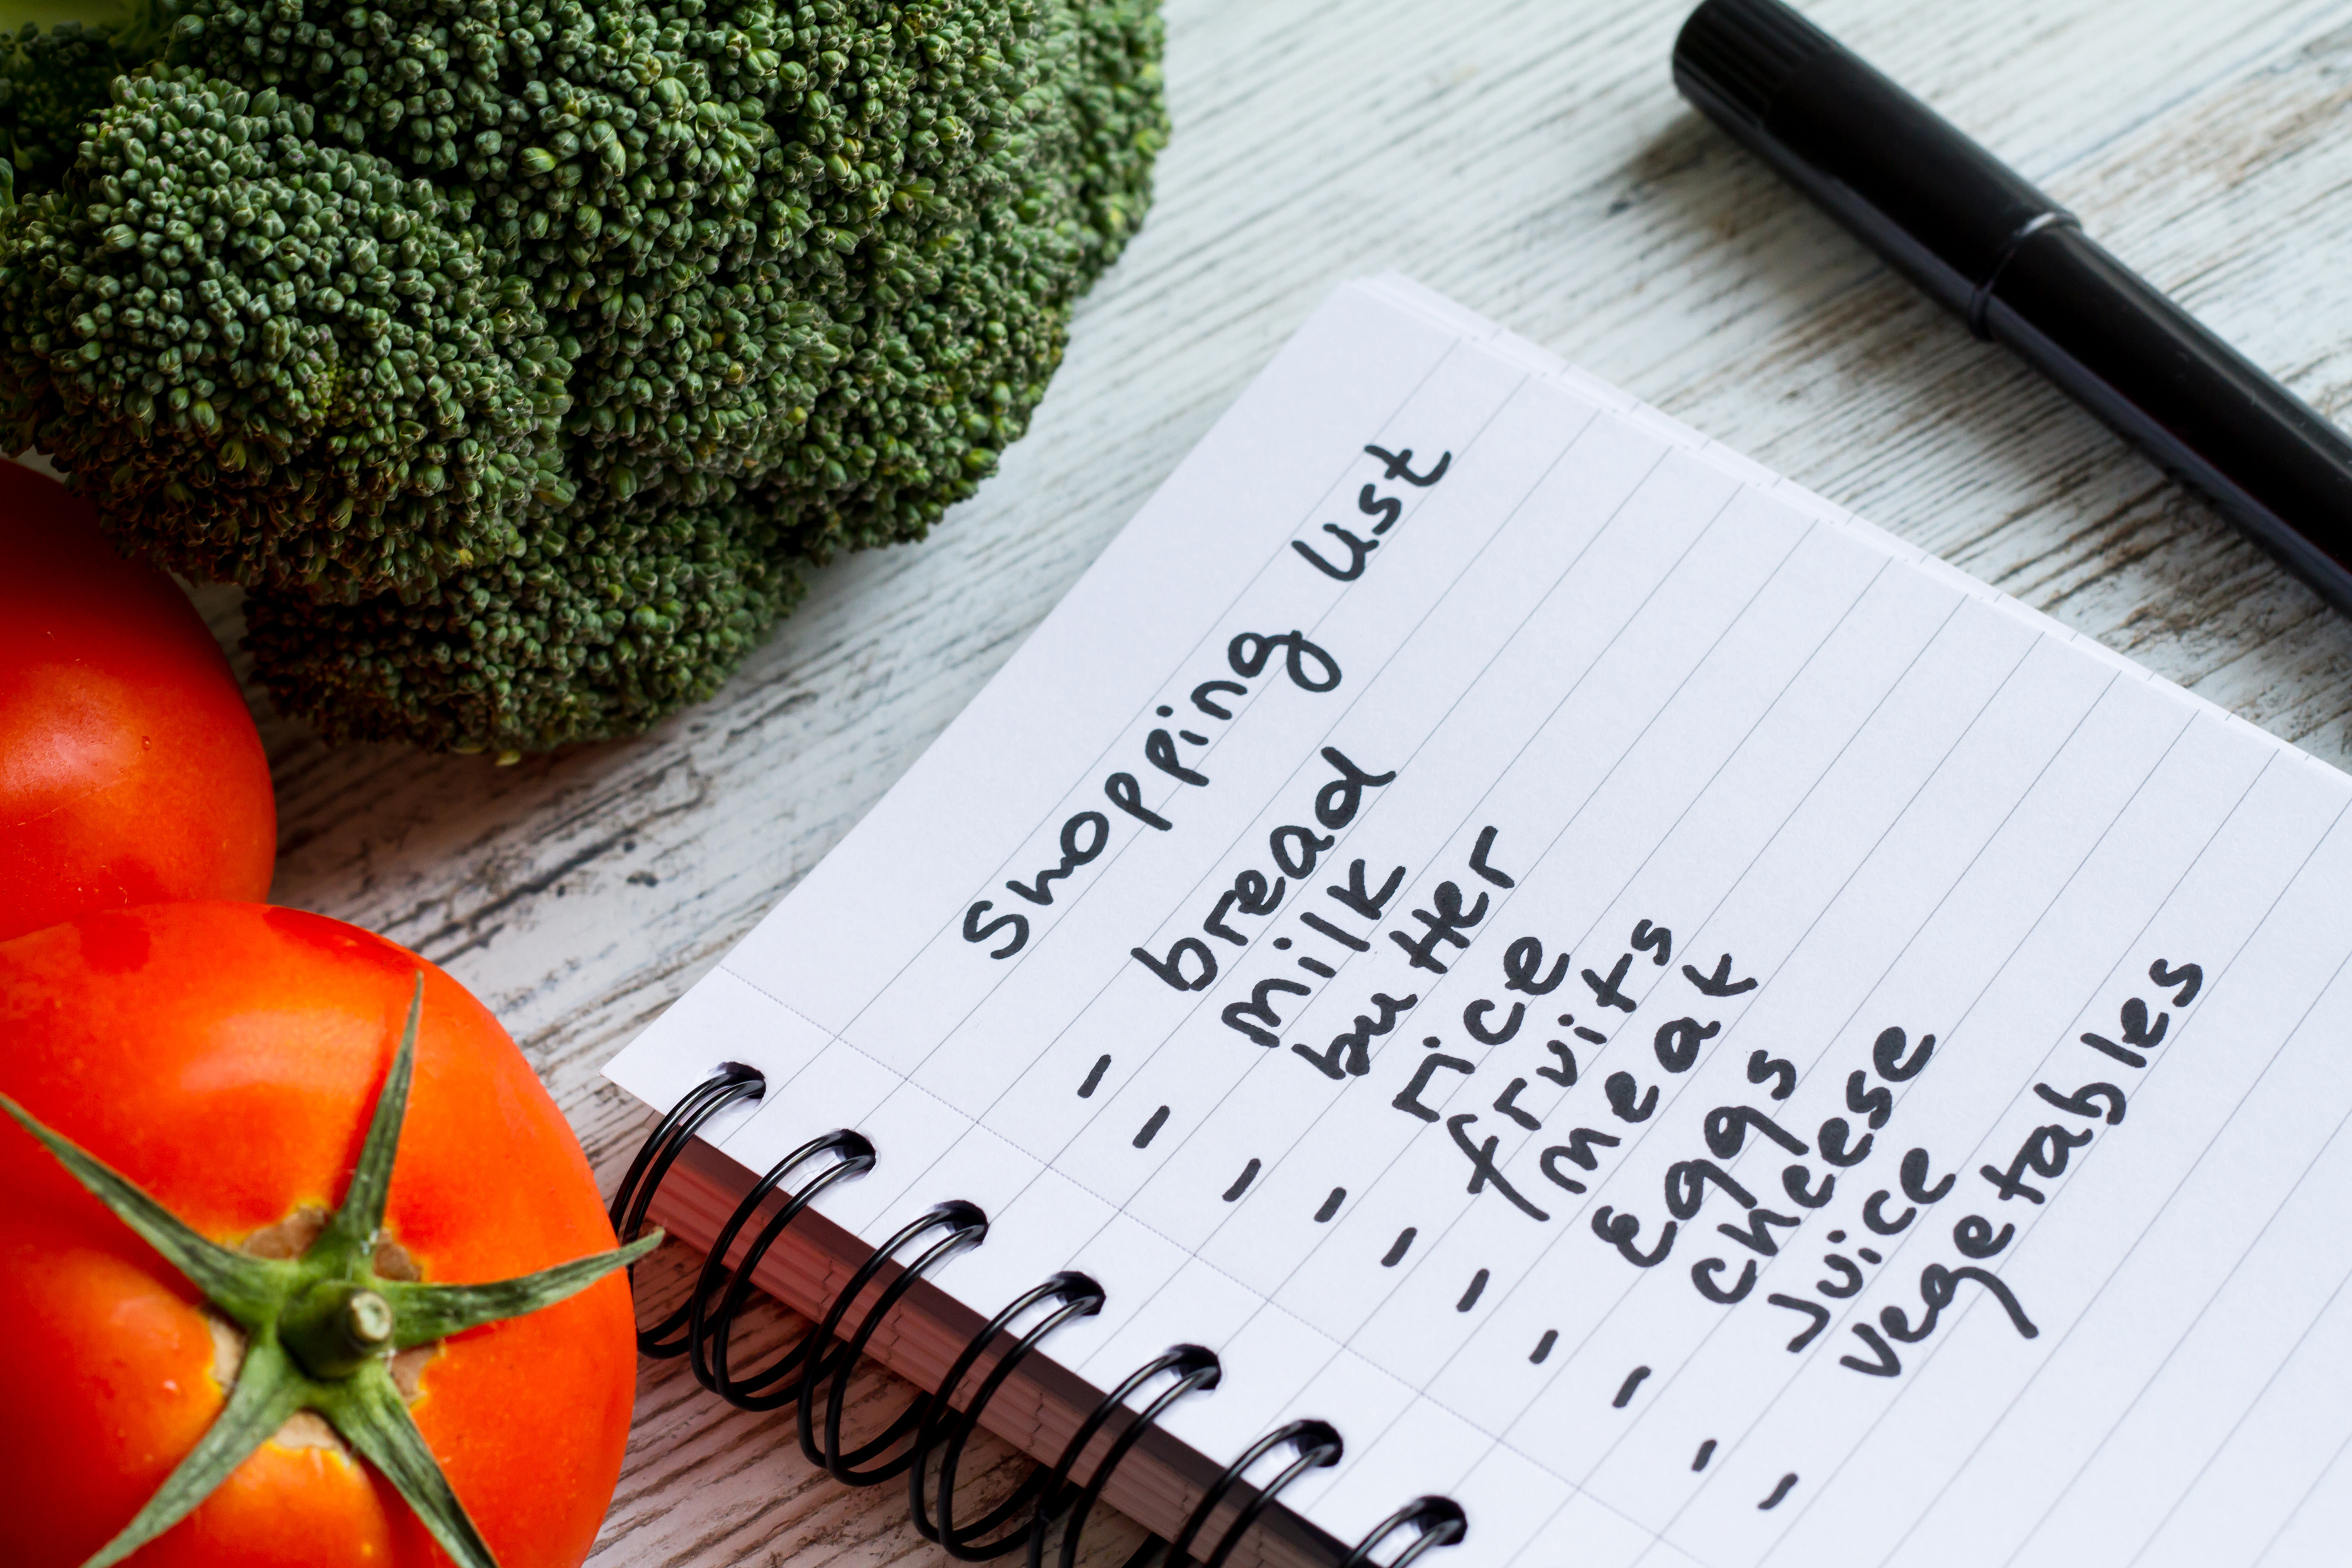 Shopping list
- bread
- milk
- butter
- rice
- fruits
- meat
- Eggs
- cheese
- Juice
- vegetables